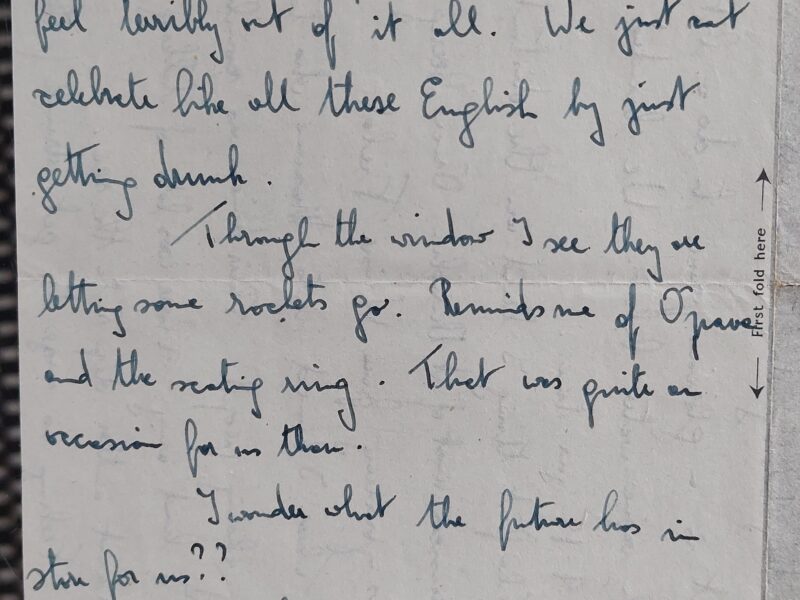 feel terribly out of it all. We just
celebrate like all these English by just
getting drunk.
Through the window I see they are
letting some rockets go. Reminds me of Opava
and the scating ring. That was quite an
occasion for us then.
I wonder what the future has in
store for us??
First fold here